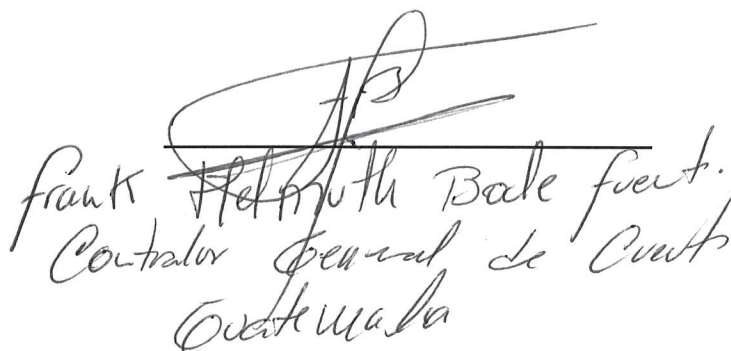 Frank Helmuth Bode Fuent.
Contralor General de Cuent
Guatemala